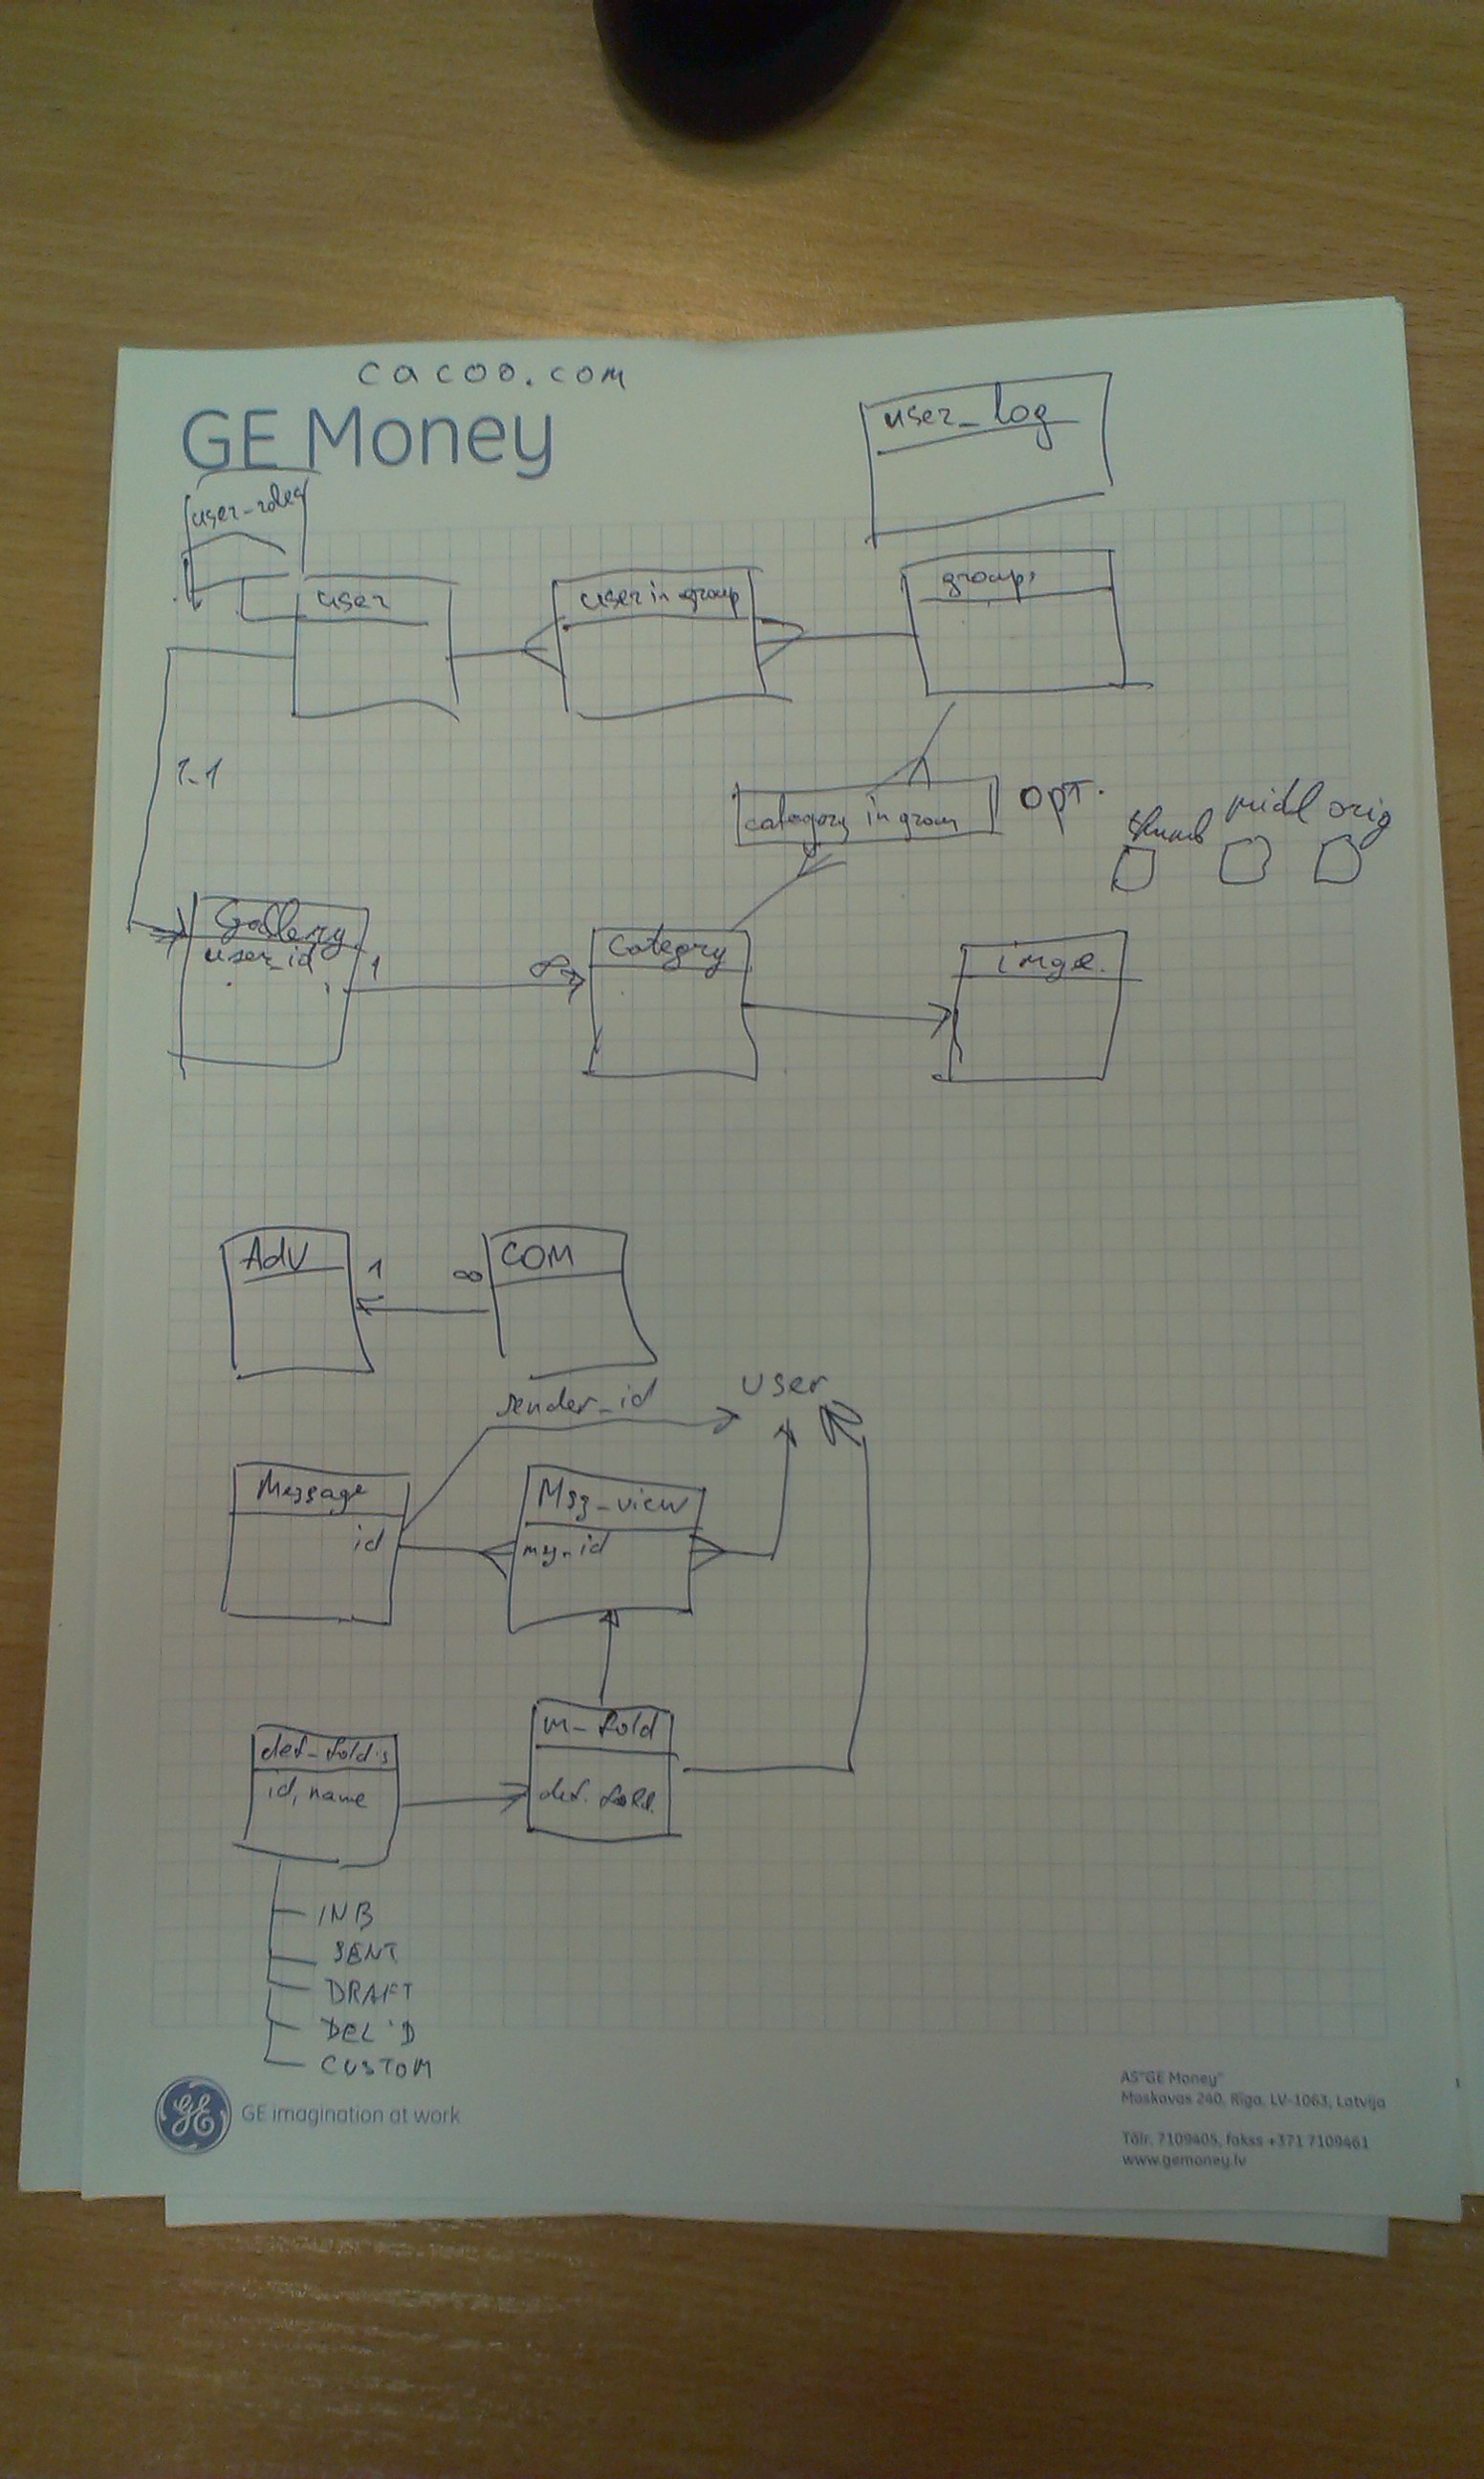 cacoo.com
GE Money
user_log
user-roles
user
user in group
groups
1-1
category in group
opt.
thumb
midl
orig
Gallery
user_id
1
∞
Category
imge.
Adv
1
∞
COM
sender_id
user
Message
id
Msg_view
msg_id
m_fold
def. fold.
def_fold's
id, name
INB
SENT
DRAFT
DEL'D
CUSTOM
GE imagination at work
AS"GE Money"
Maskavas 240, Rīga, LV-1063, Latvija
Tālr. 7109405, fakss +371 7109461
www.gemoney.lv